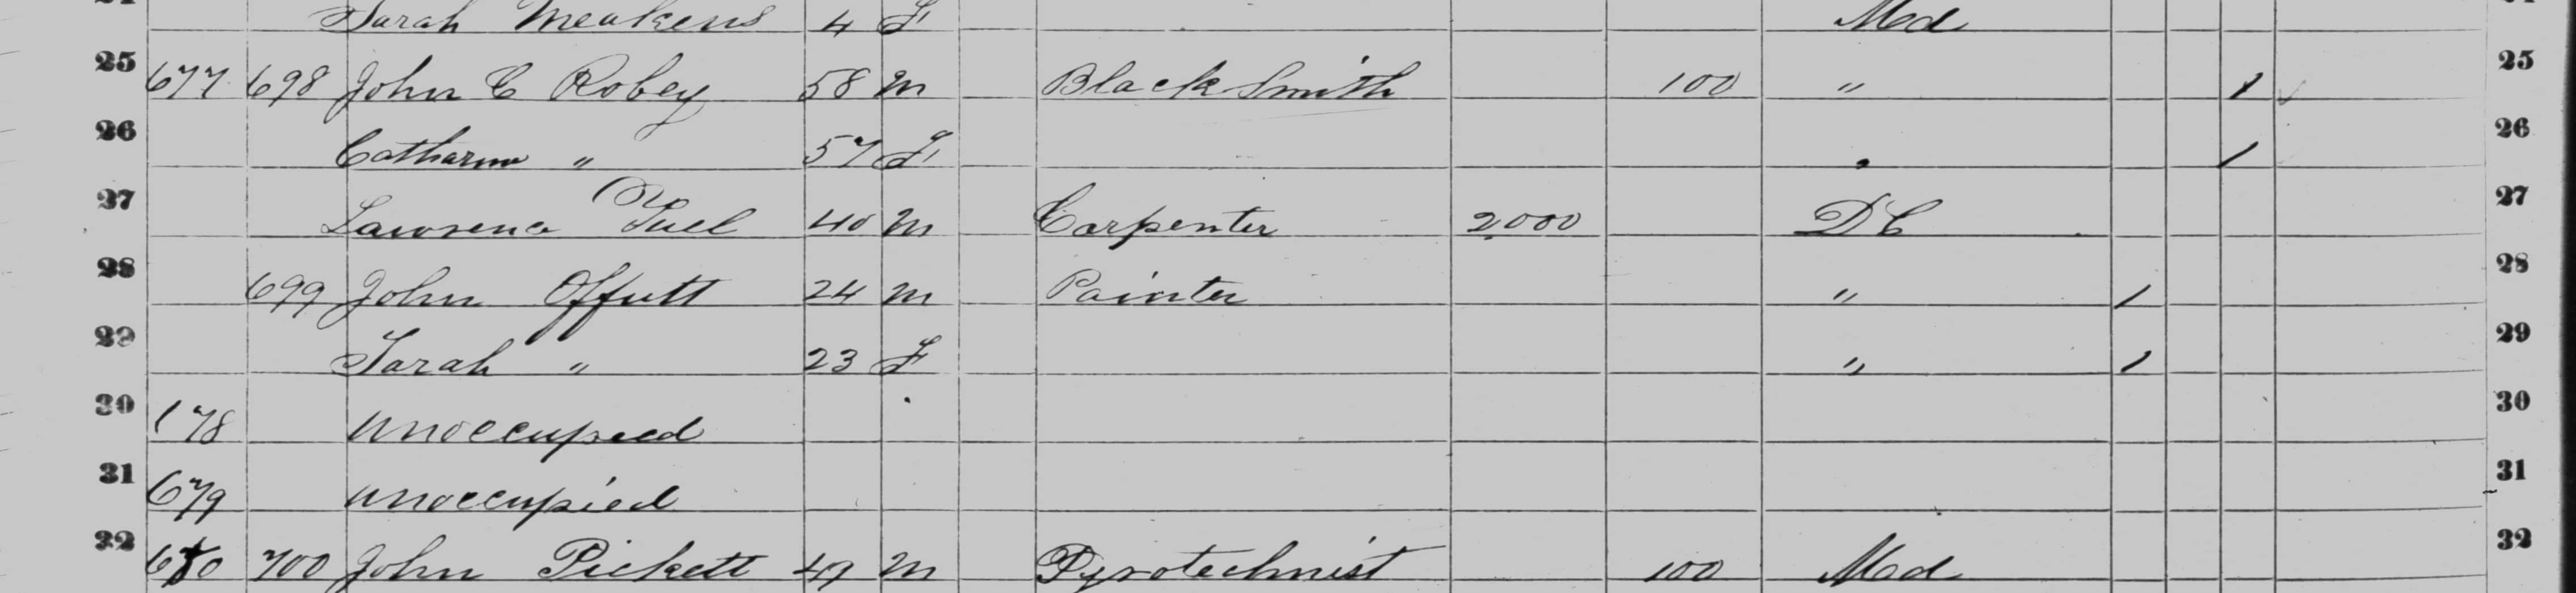 Sarah Meakens 4 F Md
25 677 698 John C Robey 58 m Black Smith 100 " 1 25
26 Catharine " 57 F " / 26
27 Lawrence 40 m Carpenter 2000 D C 27
28 699 John Offutt 24 m Painter " / 28
29 Sarah " 23 F " / 29
30 178 unoccupied 30
31 679 unoccupied 31
32 680 700 John Pickett 49 m Pyrotechnist 100 Md 32